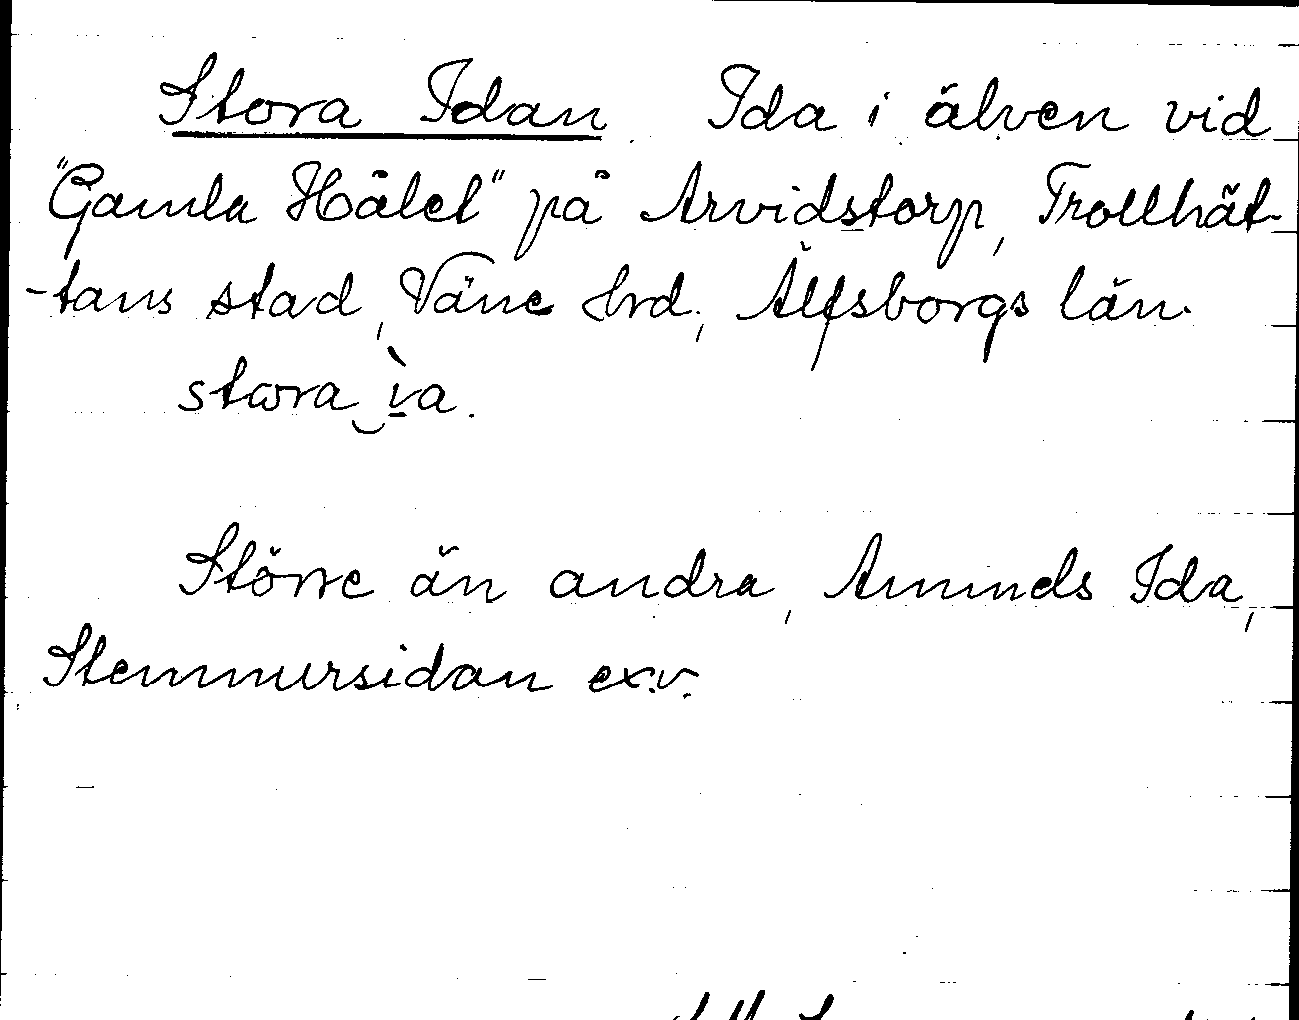 Stora Idan. Ida i älven vid
"Gamla Hålet" på Arvidstorp, Trollhät-
-tans stad, Väne hrd, Älfsborgs län.
stora‿ìa.
Större än andra, Ammels Ida,
Stemmursidan ex.v.